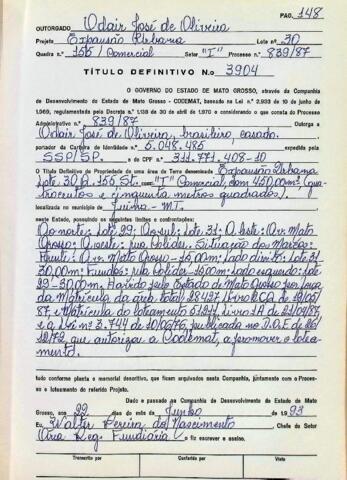 PAG. 148
OUTORGADO Odair José de Oliveira
Projeto Expansão Urbana Lote nº 30
Quadra n.º 155/Comercial Setor "I" Processo n.º 839/87
TÍTULO DEFINITIVO N.º 3904
O GOVERNO DO ESTADO DE MATO GROSSO, através da Companhia
de Desenvolvimento do Estado de Mato Grosso - CODEMAT, baseado na Lei n.º 2.933 de 10 de junho de
1969, regulamentada pelo Decreto n.º 1.138 de 30 de abril de 1970 e considerando o que consta do Processo
Administrativo n.º 839/87 Outorga a
Odair José de Oliveira, brasileiro, casado.
portador da Carteira de Identidade n.º 5.048.485 expedida pela
SSP/SP. e do CPF n.º 311.771.408-10
O Título Definitivo de Propriedade de uma área de Terra denominada Expansão Urbana
Lote. 30 Q. 155 St. "I" Comercial, com 450,00m² (qua-
trocentos e cinquenta metros quadrados).
localizada no município de Juina - MT.
neste Estado, possuindo os seguintes limites e confrontações:
Ao norte: Lote 29; Ao sul: Lote 31; A leste: Av. Mato
Grosso; A oeste: rua Colider. Situação dos Marcos:
Frente: Av. Mato Grosso - 15,00m; Lado direito: Lote 31
30,00m; Fundos: rua Colider - 15,00m; Lado esquerdo: Lote
29 - 30,00m. Havido pelo Estado de Mato Grosso por força
da Matrícula da área total 28427, Livro 2 de
87 e Matrícula do loteamento Livro 1A de 21/04/87
e a Lei nº 3.744 de 10/06/76, publicada no D.O.E de
que autorizou a Codemat, a promover o lotea-
mento.
tudo conforme planta e memorial descritivo, que ficam arquivados nesta Companhia, juntamente com o Proces-
so e loteamento do referido Projeto.
Dado e passado na Companhia de Desenvolvimento do Estado de Mato
Grosso, aos 22 dias do mês de Junho de 1.993
Eu, Walter Pereira do Nascimento Chefe do Setor
Área Reg. Fundiária o fiz escrever e assino.
Transcrito por Conferido por Visto